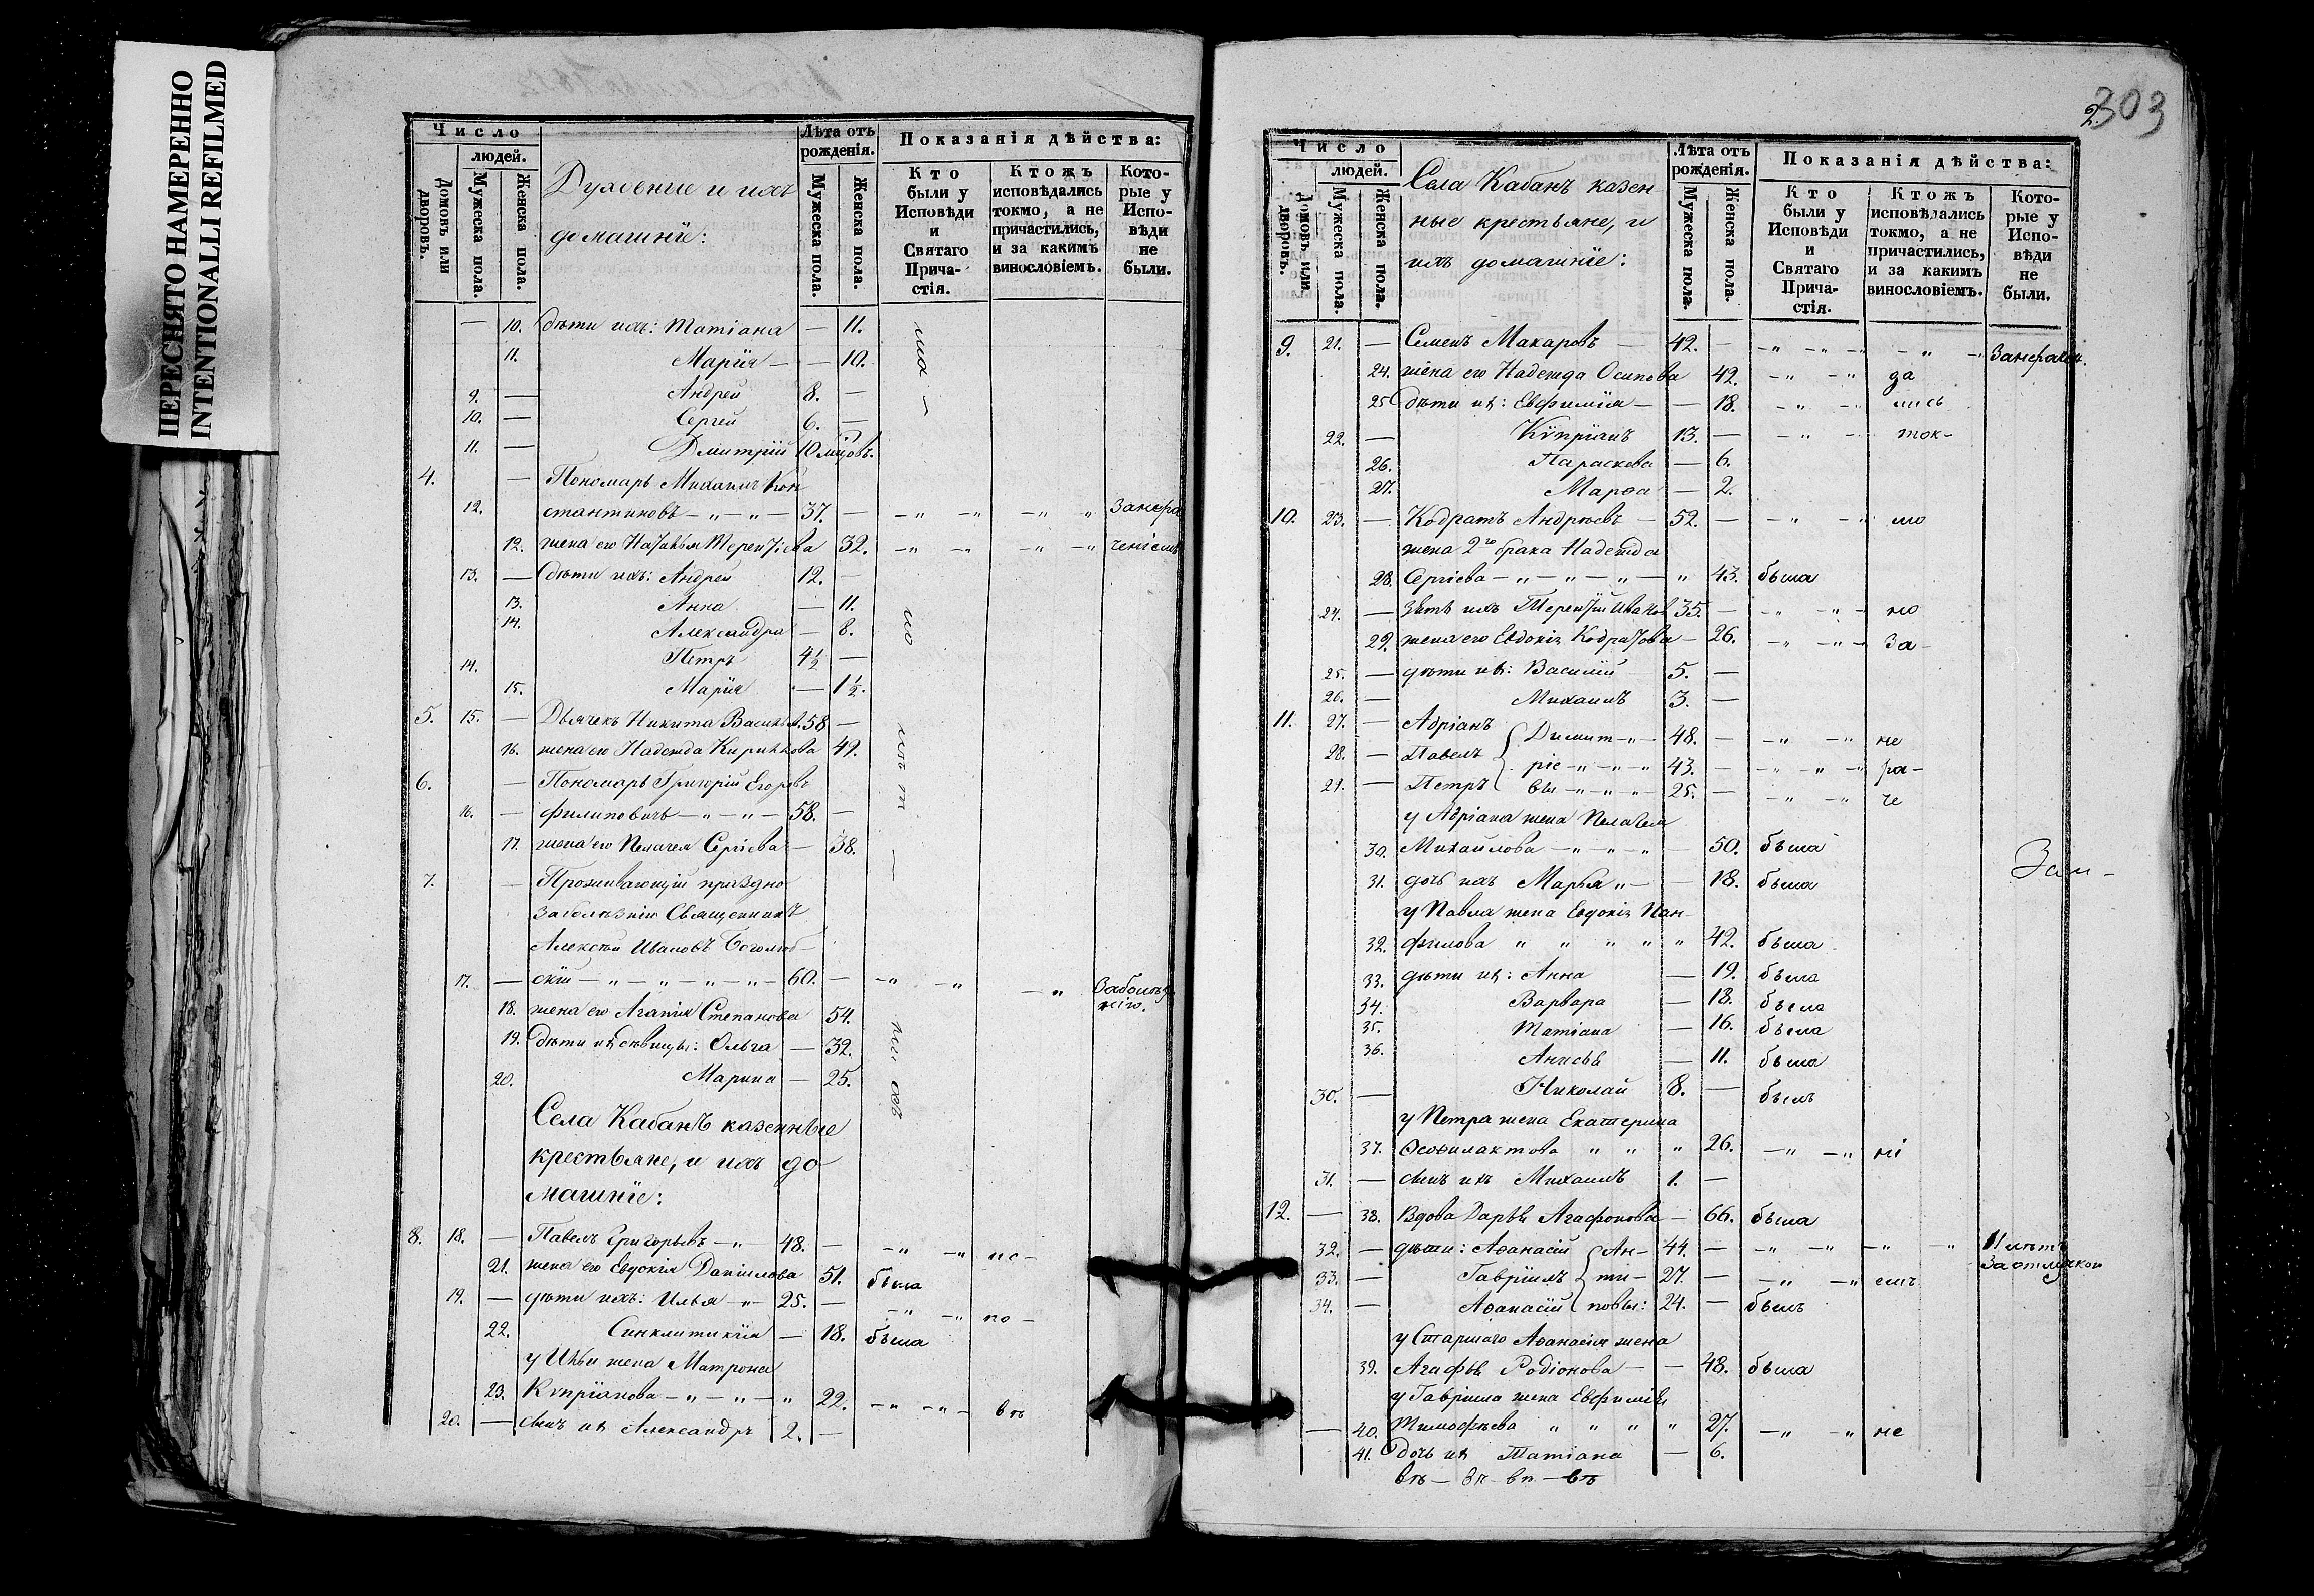 ПЕРЕСНЯТО НАМЕРЕННО
INTENTIONALLI REFILMED
Число
людей.
Домовъ или дворовъ.
Мужеска пола.
Женска пола.
Духовные и ихъ
домашнїе:
Лѣта отъ рожденія.
Мужеска пола.
Женска пола.
Показанія дѣйства:
Кто были у Исповѣди и Святаго Прича-стія.
Ктожъ исповѣдались токмо, а не причастились, и за какимъ винословіемъ.
Кото-рые у Испо-вѣди не были.
— 10. дѣти ихъ: Татіана — 11.
11. Марїя — — 10.
9. — Андрей 8. —
10. — Сергей 6. —
11. — Дмитрїй 10 мцовъ.
4. — Пономарь Михаилъ Кон
12. стантиновъ — „ — „ — 37. — — „ — „ — „ „
12. жена его Наталья Терентіева 32. — „ — „ — „ — „
13. — дѣти ихъ: Андрей 12. —
13. Анна — 11.
14. Александра — 8.
14. Петръ 4½ —
15. Марїя — 1½.
5. 15. — Дьячекъ Никита Васильев. 58 —
16. жена его Надежда Кириллова 49.
6. — Пономарь Григорїй Егоровъ
16. — Филиповичь — „ — „ — 58. —
17. жена его Пелагея Сергіева — 38.
7. — Проживающїй праздно
за болѣзнію Священникъ
Алексѣй Ивановъ Боголюб-
17. — скїй — „ — „ — „ — „ — 60. — — „ — „ — „ За болѣз
нію.
18. жена его Агапія Степанова 54.
19. дѣти ихъ дѣвицы: Ольга — 32.
20. Марина — 25.
Села Кабанъ казенные
крестьяне, и ихъ до
машнїе:
8. 18. — Павелъ Григорьевъ — „ 48. — — „ — „ ис —
21. жена его Евдокія Даніилова 51. была
19. — дѣти ихъ: Илья — „ — 25. — — „ — „ по —
22. Синклитикїя — 18. была
у Ильи жена Матрона
23. Кипріанова — „ — „ — „ 22. — „ — „ — вѣ
20. — сынъ ихъ Александръ 2. —
303
2.
Число
людей.
Домовъ или дворовъ.
Мужеска пола.
Женска пола.
Села Кабанъ казен
ные крестьяне, и
ихъ домашнїе:
Лѣта отъ рожденія.
Мужеска пола.
Женска пола.
Показанія дѣйства:
Кто были у Исповѣди и Святаго Прича-стія.
Ктожъ исповѣдались токмо, а не причастились, и за какимъ винословіемъ.
Кото-рые у Испо-вѣди не были.
9. 21. — Семенъ Макаровъ — 42. — — „ — „ — „ — „ —
24. жена его Надежда Осипова 42. — „ — „ да
25 дѣти ихъ: Евфимїя — — 18. — „ — лись
22. — Кїпрїанъ 13. — — „ — ток-
26. Параскева — 6.
27. Марѳа — 2.
10. 23. — Кодратъ Андреевъ — 52. — — „ — „ мо
жена 2го брака Надежда
28. Сергіева — „ — „ — „ — „ 43. была
24. — зять ихъ Терентїй Иванов 35. — — „ — „ — но
29. жена его Евдокія Кодратова — 26. — „ — „ — за —
25. — дѣти ихъ: Василїй 5. —
26. — Михаилъ 3. —
11. 27. — Адріанъ
Димит — „ — 48. — — „ — „ не
28. — Павелъ
ріе — „ — „ — „ 43. — — „ — „ — „ ра —
29. — Петръ вы — „ — „ — „ 25. — — „ — „ че
у Адріана жена Пелагея
30. Михайлова — „ — „ — „ — 50. была
31. дочь ихъ Марья „ — — 18. была
Зам —
у Павла жена Евдокія Пан-
32. филова „ „ „ „ „ 42. была
33. дѣти ихъ: Анна — 19. была
34. Варвара — 18. была
35. Татіана — 16. была
36. Анисья — 11. была
30. — Николай 8. — былъ
у Петра жена Екатерина
37. Ѳеофилактова „ „ „ 26. — „ — „ ні
31. — сынъ ихъ Михаилъ 1. —
12. — 38. Вдова Дарья Агафонова — 66. была
32. — дѣти: Аѳанасїй Ан — 44. — — „ — „ — „ — „ 11 лѣтъ
за отлучкою
33. — Гаврїилъ ти — 27. — — „ — „ емъ
34. — Аѳанасїй повы: 24. — былъ
у Старшаго Аѳанасїя жена
39. Агафья Родіонова — — 48. была
у Гаврїила жена Евфимія
— 40. Тимофѣева „ „ „ „ „ 27. — „ — „ не
41. дочь ихъ Татіана — 6.